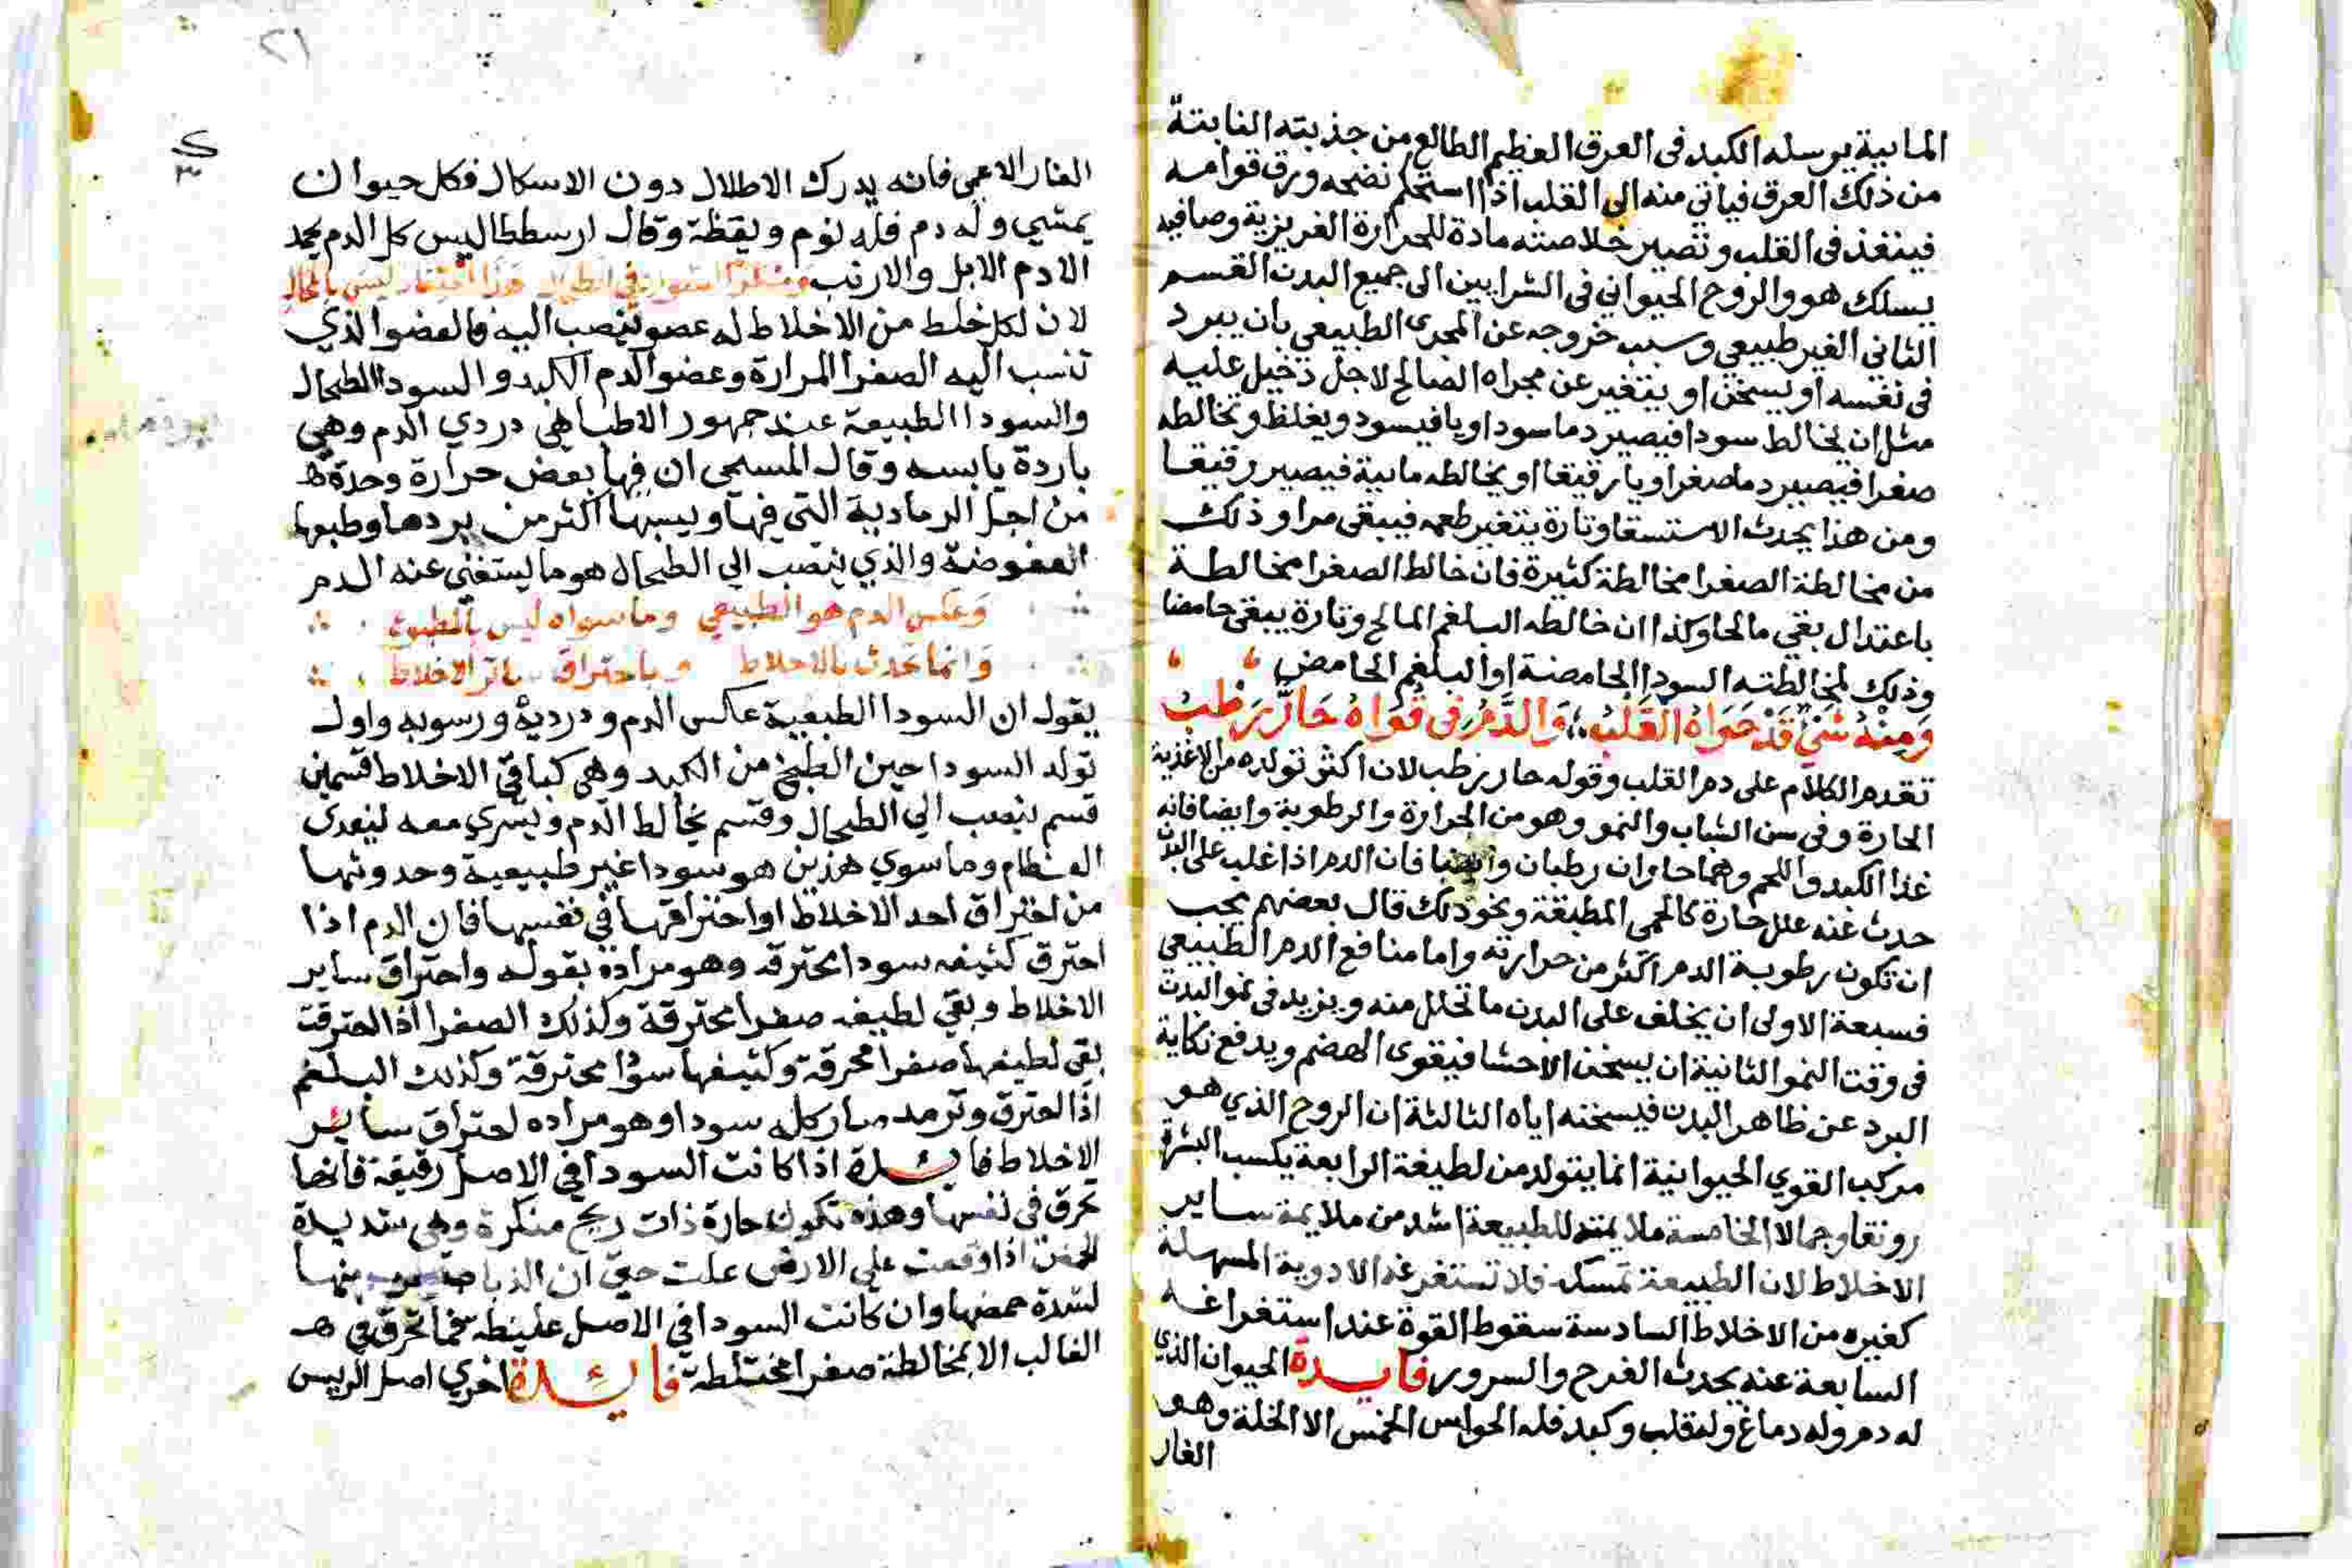 المابية يرسله الكبد فى العرق العظيم الطالع من جذبته النابتة
من ذلك العرق فياتي منه الى القلب اذا استحكم نضجه ورق قوامه
فينغذ فى القلب وتصير خلاصته مادة للحرارة الغريزية وصافيه
يسلك هو والروح الحيواني فى الشرايين الى جميع البدن القسم
الثاني الغير طبيعي وسبب خروجه عن المجرى الطبيعي بان يبرد
فى نفسه او يسخن او يتغير عن مجراه الصالح لاجل دخيل عليه
مثل ان يخالط سودا فيصير دما سوداويا فيسود ويغلظ وتخالطه
صفرا فيصير دما صفراويا رقيقا او يخالطه مابية فيصير رقيقا
ومن هذا يحدث الاستسقا وتارة يتغير طعمه فيبقى مرا وذلك
من مخالطة الصفرا مخالطة كثيرة فان خالط الصفرا مخالطة
باعتدال بقي مالحا وكذا ان خالطه البلغم المالح وتارة يبقى حامضا
وذلك لمخالطته السودا الحامضة او البلغم الحامض
وَمِنْهُ شَيْ قَدْ حَوَاهُ القَلْبُ وَالدَّمُ فى قُوَاهُ حَارٌّ رَطْبُ
تقدم الكلام على دم القلب وقوله حار رطب لان اكثر تولده من الاغذية
الحارة وفى سن الشباب والنمو وهو من الحرارة والرطوبة وايضا فانه
غذا الكبد واللحم وهما حاران رطبان وايضا فان الدم اذا غلب على البدن
حدث عنه علل حارة كالحمى المطبقة ونحو ذلك قال بعضهم يجب
ان تكون رطوبة الدم اكثر من حرارته واما منافع الدم الطبيعى
فسبعة الاولى ان يخلف على البدن ما تحلل منه ويزيد فى نمو البدن
فى وقت النمو الثانية ان يسخن الاحشا فيقوى الهضم ويدفع نكاية
البرد عن ظاهر البدن فيسخنه اياه الثالثة ان الروح الذي هو
مركب القوي الحيوانية انما يتولد من لطيفة الرابعة يكسب البشرة
رونقا وجمالا الخامسة ملايمته للطبيعة اشد من ملايمة ساير
الاخلاط لان الطبيعة تمسكه فلا تستفرغه الادوية المسهلة
كغيره من الاخلاط السادسة سقوط القوة عند استفراغه
السابعة عنه يحدث الفرح والسرور فايدة الحيوان الذي
له دم وله دماغ وله قلب وكبد فله الحواس الخمس الا الخلد وهو
الفار
٢١
الفار الاعمى فانه يدرك الاطلال دون الاسكال فكل حيوان
يمشي وله دم فله نوم ويقظة وقال ارسططاليس كل الدم يجمد
الا دم الابل والارنب
لان لكل خلط من الاخلاط له عضو ينصب اليه فالعضو الذي
تنسب اليه الصفرا المرارة وعضو الدم الكبد والسودا الطحال
والسودا الطبيعة عند جمهور الاطبا هي دردي الدم وهي
باردة يابسه وقال المسيحى ان فيها بعض حرارة وحدة
من اجل الرمادية التي فيها ويبسها اكثر من بردها وطبعها
العفوضة والذي ينصب الي الطحال هو ما يستغني عنه الدم
وَعكس الدم هو الطبيعي وما سواه ليس بالمطبوع
وَانما تحدث بالاخلاط وباحتراق ساير الاخلاط
يقول ان السودا الطبعيية عكس الدم ودردية ورسوبه واول
تولد السودا حين الطبخ من الكبد وهى كباقي الاخلاط قسمين
قسم ينصب الي الطحال وقسم يخالط الدم ويسري معه ليغدى
العظام وما سوي هذين هو سودا غير طبيعية وحدوثها
من احتراق احد الاخلاط او احتراقها في نفسها فان الدم اذا
احترق كثيفه سودا محترقه وهو مرادة بقوله واحتراق ساير
الاخلاط وبقي لطيفه صفرا محترقة وكذلك الصفرا اذا احترقت
بقى لطيفها صفرا محرقة وكثيفها سودا محترقة وكذلك البلغم
اذا احترق وترمد صار كله سودا وهو مراده احتراق ساير
الاخلاط فائدة اذا كانت السودا في الاصل رقيقة فانها
تحرق فى نفسها وهذه تكون حارة ذات ريح منكرة وهى شديدة
الحمض اذا وقعت علي الارض علت حتي ان الذباب منها
لشدة حمضها وان كانت السودا في الاصل غليظه تحرق في
الغالب الا بمخالطة صفرا مختلطة فائدة اخري اصل الريس